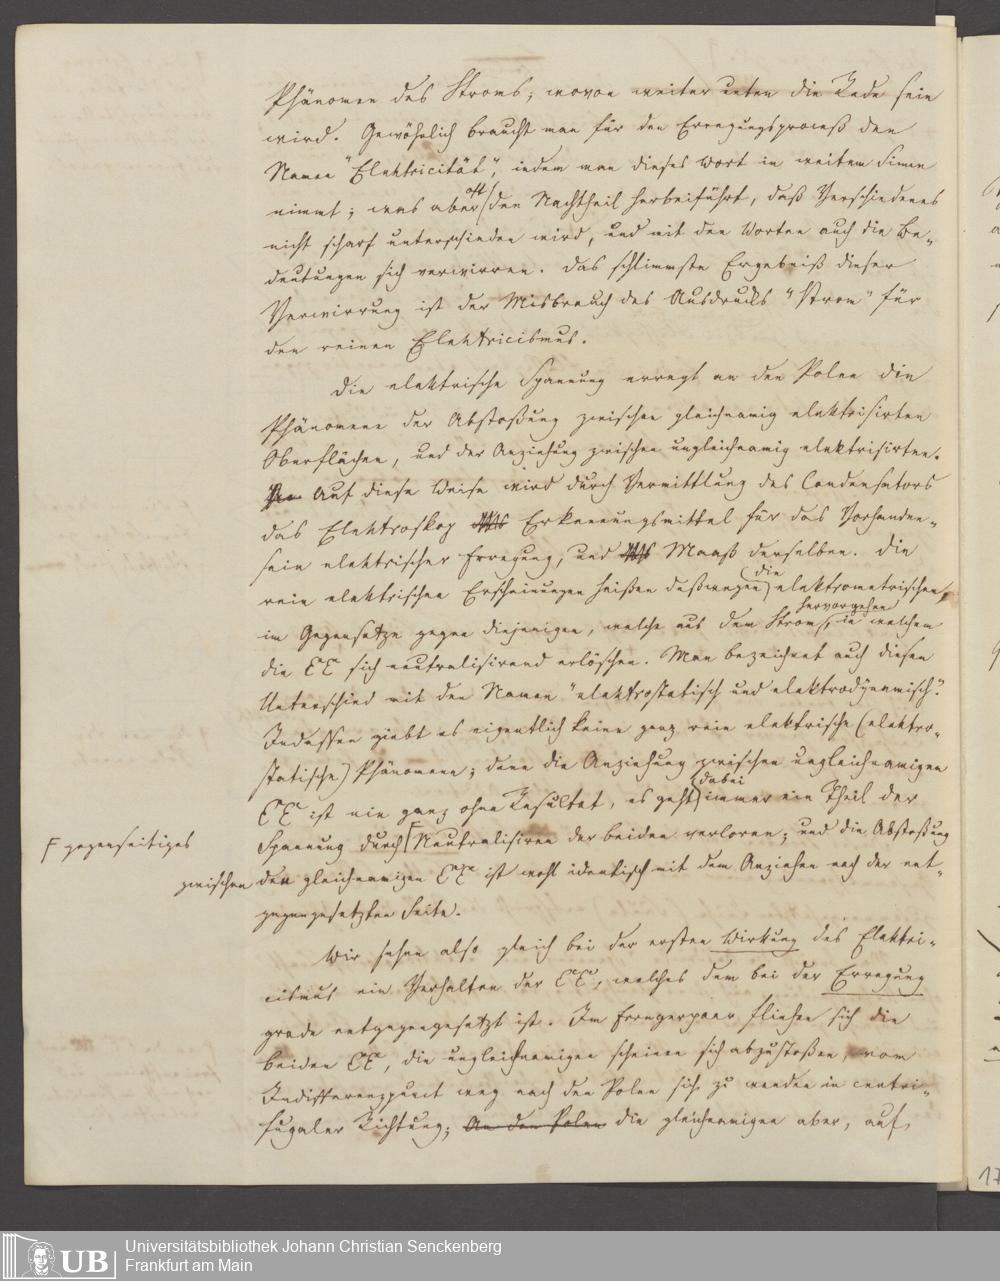 Phänomen des Stroms; wovon weiter unten die Rede sein
wird. Gewöhnlich braucht man für den Erregungsproceß den
Namen "Elektricität", indem man dieses Wort in weitem Sinne
nimmt; was aber oft den Nachtheil herbeiführt, daß Verschiedenes
nicht scharf unterschieden wird, und mit den Worten auch die Be-
deutungen sich verwirren. Das schlimmste Ergebniß dieser
Verwirrung ist der Misbrauch des Ausdrucks "Strom" für
den reinen Elektricismus.
Die elektrische Spannung erregt an den Polen die
Phänomene der Abstoßung zwischen gleichnamig elektrisirten
Oberflächen, und der Anziehung zwischen ungleichnamig elektrisirten.
Auf diese Weise wird durch Vermittlung des Condensators
das Elektroskop Erkennungsmittel für das Vorhanden-
sein elektrischer Erregung, und Maaß derselben. Die
rein elektrischen Erscheinungen heißen deßwegen die elektrometrischen,
im Gegensatze gegen diejenigen, welche aus dem Strom hervorgehen, in welchem
die EE sich neutralisirend erlöschen. Man bezeichnet auch diesen
Unterschied mit den Namen "elektrostatisch und elektrodynamisch".
Indessen giebt es eigentlich keine ganz rein elektrische (elektro-
statische) Phänomene; denn die Anziehung zwischen ungleichnamigen
EE ist nie ganz ohne Resultat, es geht dabei immer ein Theil der
Spannung durch F Neutralisiren der beiden verloren; und die Abstoßung
F gegenseitiges
zwischen den gleichnamigen EE ist wohl identisch mit dem Anziehen nach der ent-
gegengesetzten Seite.
Wir sehen also gleich bei der ersten Wirkung des Elektri-
cismus ein Verhalten der EE, welches dem bei der Erregung
grade entgegengesetzt ist. Im Erregerpaar fliehen sich die
beiden EE, die ungleichnamigen scheinen sich abzustoßen, vom
Indifferenzpunct weg nach den Polen sich zu wenden in centri-
fugaler Richtung; An den Polen die gleichnamigen aber, auf
17
Universitätsbibliothek Johann Christian Senckenberg
Frankfurt am Main
UB